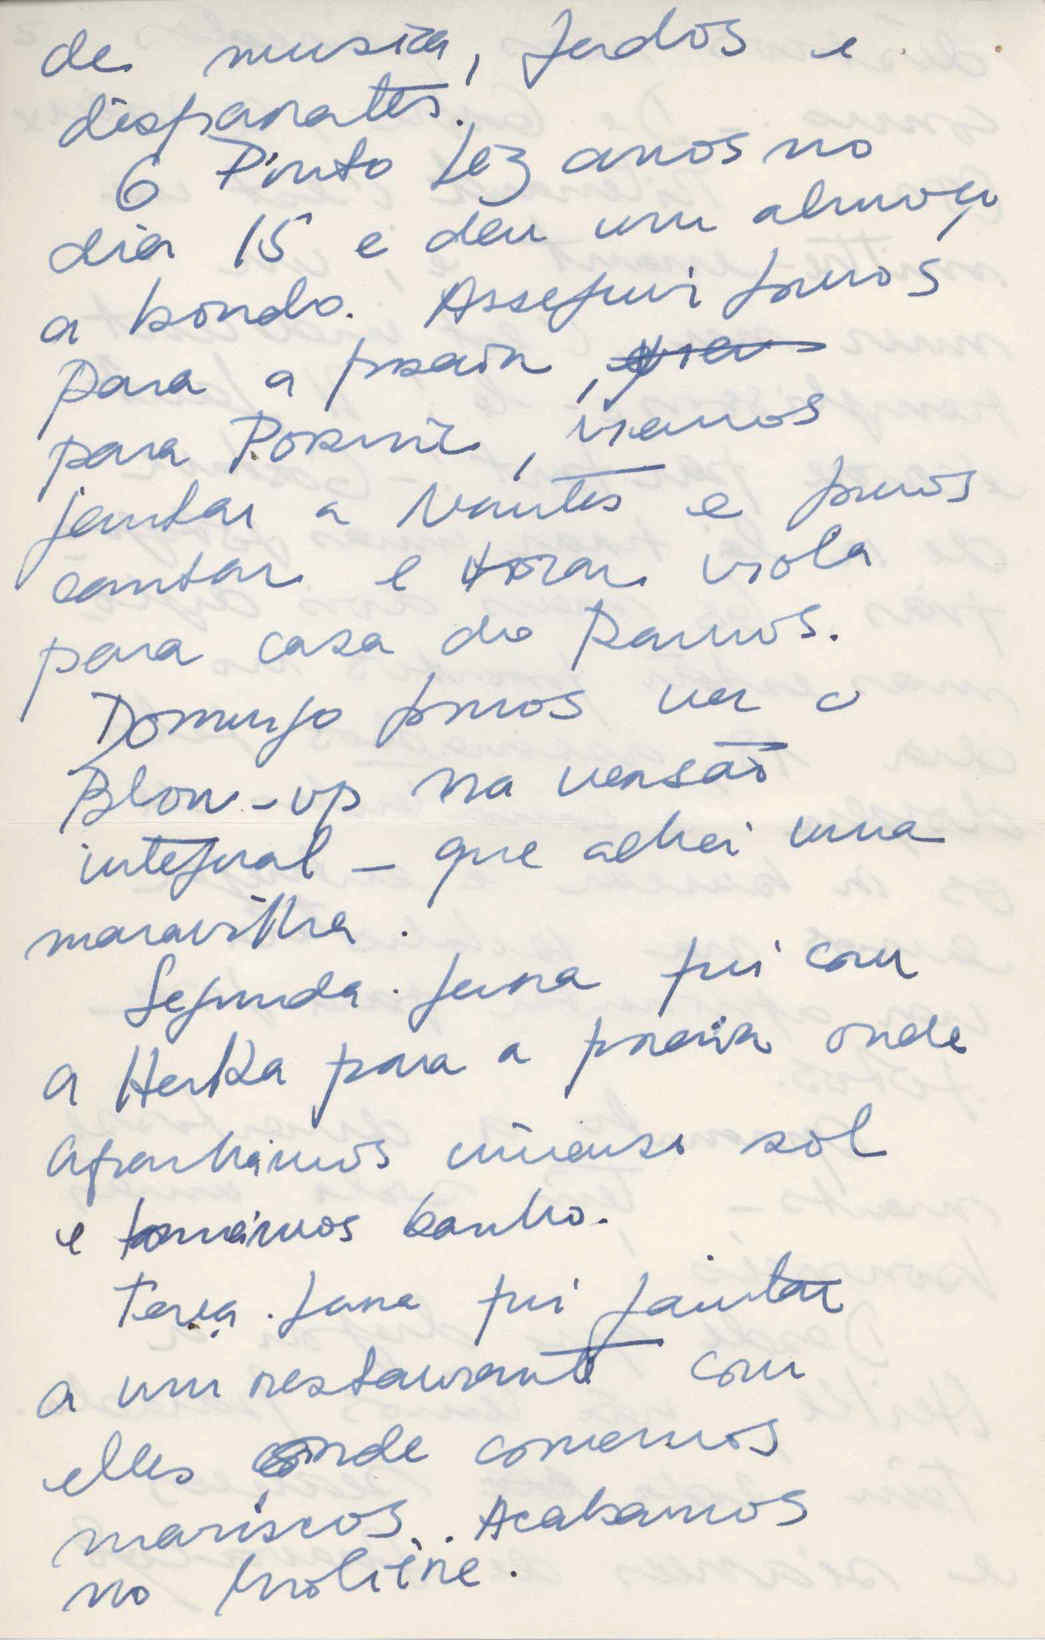 de musica, fados e
disparates.
O Pinto fez anos no
dia 15 e deu um almoço
a bordo. A seguir fomos
para a praia,
para Pornic, viemos
jantar a Nantes e fomos
cantar e tocar viola
para casa do Ramos.
Domingo fomos ver o
Blow-up na versão
integral – que achei uma
maravilha.
Segunda-feira fui com
a Heika para a praia onde
apanhámos imenso sol
e tomámos banho.
Terça-feira fui jantar
a um restaurante com
elles onde comemos
mariscos. Acabamos
no Molière.